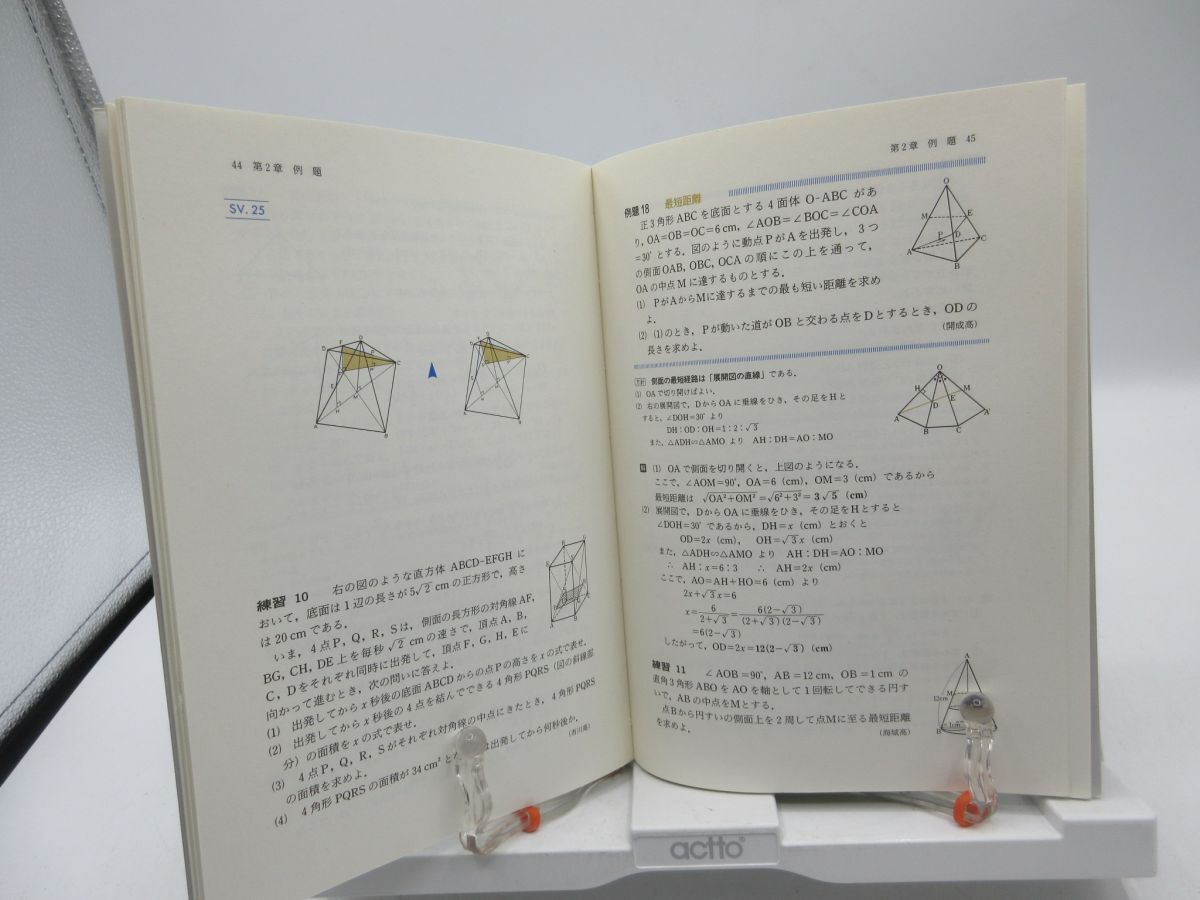 44 第2章 例 題
SV. 25
練習 10 右の図のような直方体 ABCD-EFGH に
おいて，底面は1辺の長さが5√2 cm の正方形で，高さ
は 20 cm である．
いま，4点P，Q，R，Sは，側面の長方形の対角線 AF，
BG，CH，DE 上を毎秒 √2 cm の速さで，頂点 A，B，
C，Dをそれぞれ同時に出発して，頂点 F，G，H，E に
向かって進むとき，次の問いに答えよ．
(1) 出発してからx秒後の底面 ABCD からの点Pの高さをxの式で表せ．
(2) 出発してからx秒後の4点を結んでできる4角形 PQRS（図の斜線部
分）の面積をxの式で表せ．
(3) 4点P，Q，R，Sがそれぞれ対角線の中点にきたとき，4角形 PQRS
の面積を求めよ．
(4) 4角形 PQRS の面積が 34 cm² と は出発してから何秒後か．
(市川高)
第2章 例 題 45
例題18 最短距離
正3角形 ABC を底面とする4面体 O-ABC があ
り，OA=OB=OC=6 cm，∠AOB=∠BOC=∠COA
=30° とする．図のように動点PがAを出発し，3つ
の側面 OAB，OBC，OCA の順にこの上を通って，
OA の中点Mに達するものとする．
(1) PがAからMに達するまでの最も短い距離を求め
よ．
(2) (1)のとき，Pが動いた道が OB と交わる点をDとするとき，OD の
長さを求めよ．
(開成高)
側面の最短経路は「展開図の直線」である．
(1) OA で切り開けばよい．
(2) 右の展開図で，Dから OA に垂線をひき，その足をHと
すると，∠DOH=30° より
DH：OD：OH=1：2：√3
また，△ADH∽△AMO より AH：DH=AO：MO
解 (1) OA で側面を切り開くと，上図のようになる．
ここで，∠AOM=90°，OA=6 (cm)，OM=3 (cm) であるから
最短距離は √OA²+OM²=√6²+3²=3√5 (cm)
(2) 展開図で，Dから OA に垂線をひき，その足をHとすると
∠DOH=30° であるから，DH=x (cm) とおくと
OD=2x (cm)， OH=√3x (cm)
また，△ADH∽△AMO より AH：DH=AO：MO
∴ AH：x=6：3 ∴ AH=2x (cm)
ここで，AO=AH+HO=6 (cm) より
2x+√3x=6
x=6/(2+√3)=6(2-√3)/(2+√3)(2-√3)
=6(2-√3)
したがって，OD=2x=12(2-√3) (cm)
練習 11 ∠AOB=90°，AB=12 cm，OB=1 cm の
直角3角形 ABO を AO を軸として1回転してできる円す
いで，AB の中点をMとする．
点Bから円すいの側面上を2周して点Mに至る最短距離
を求めよ．
(海城高)
12cm
1cm
actto